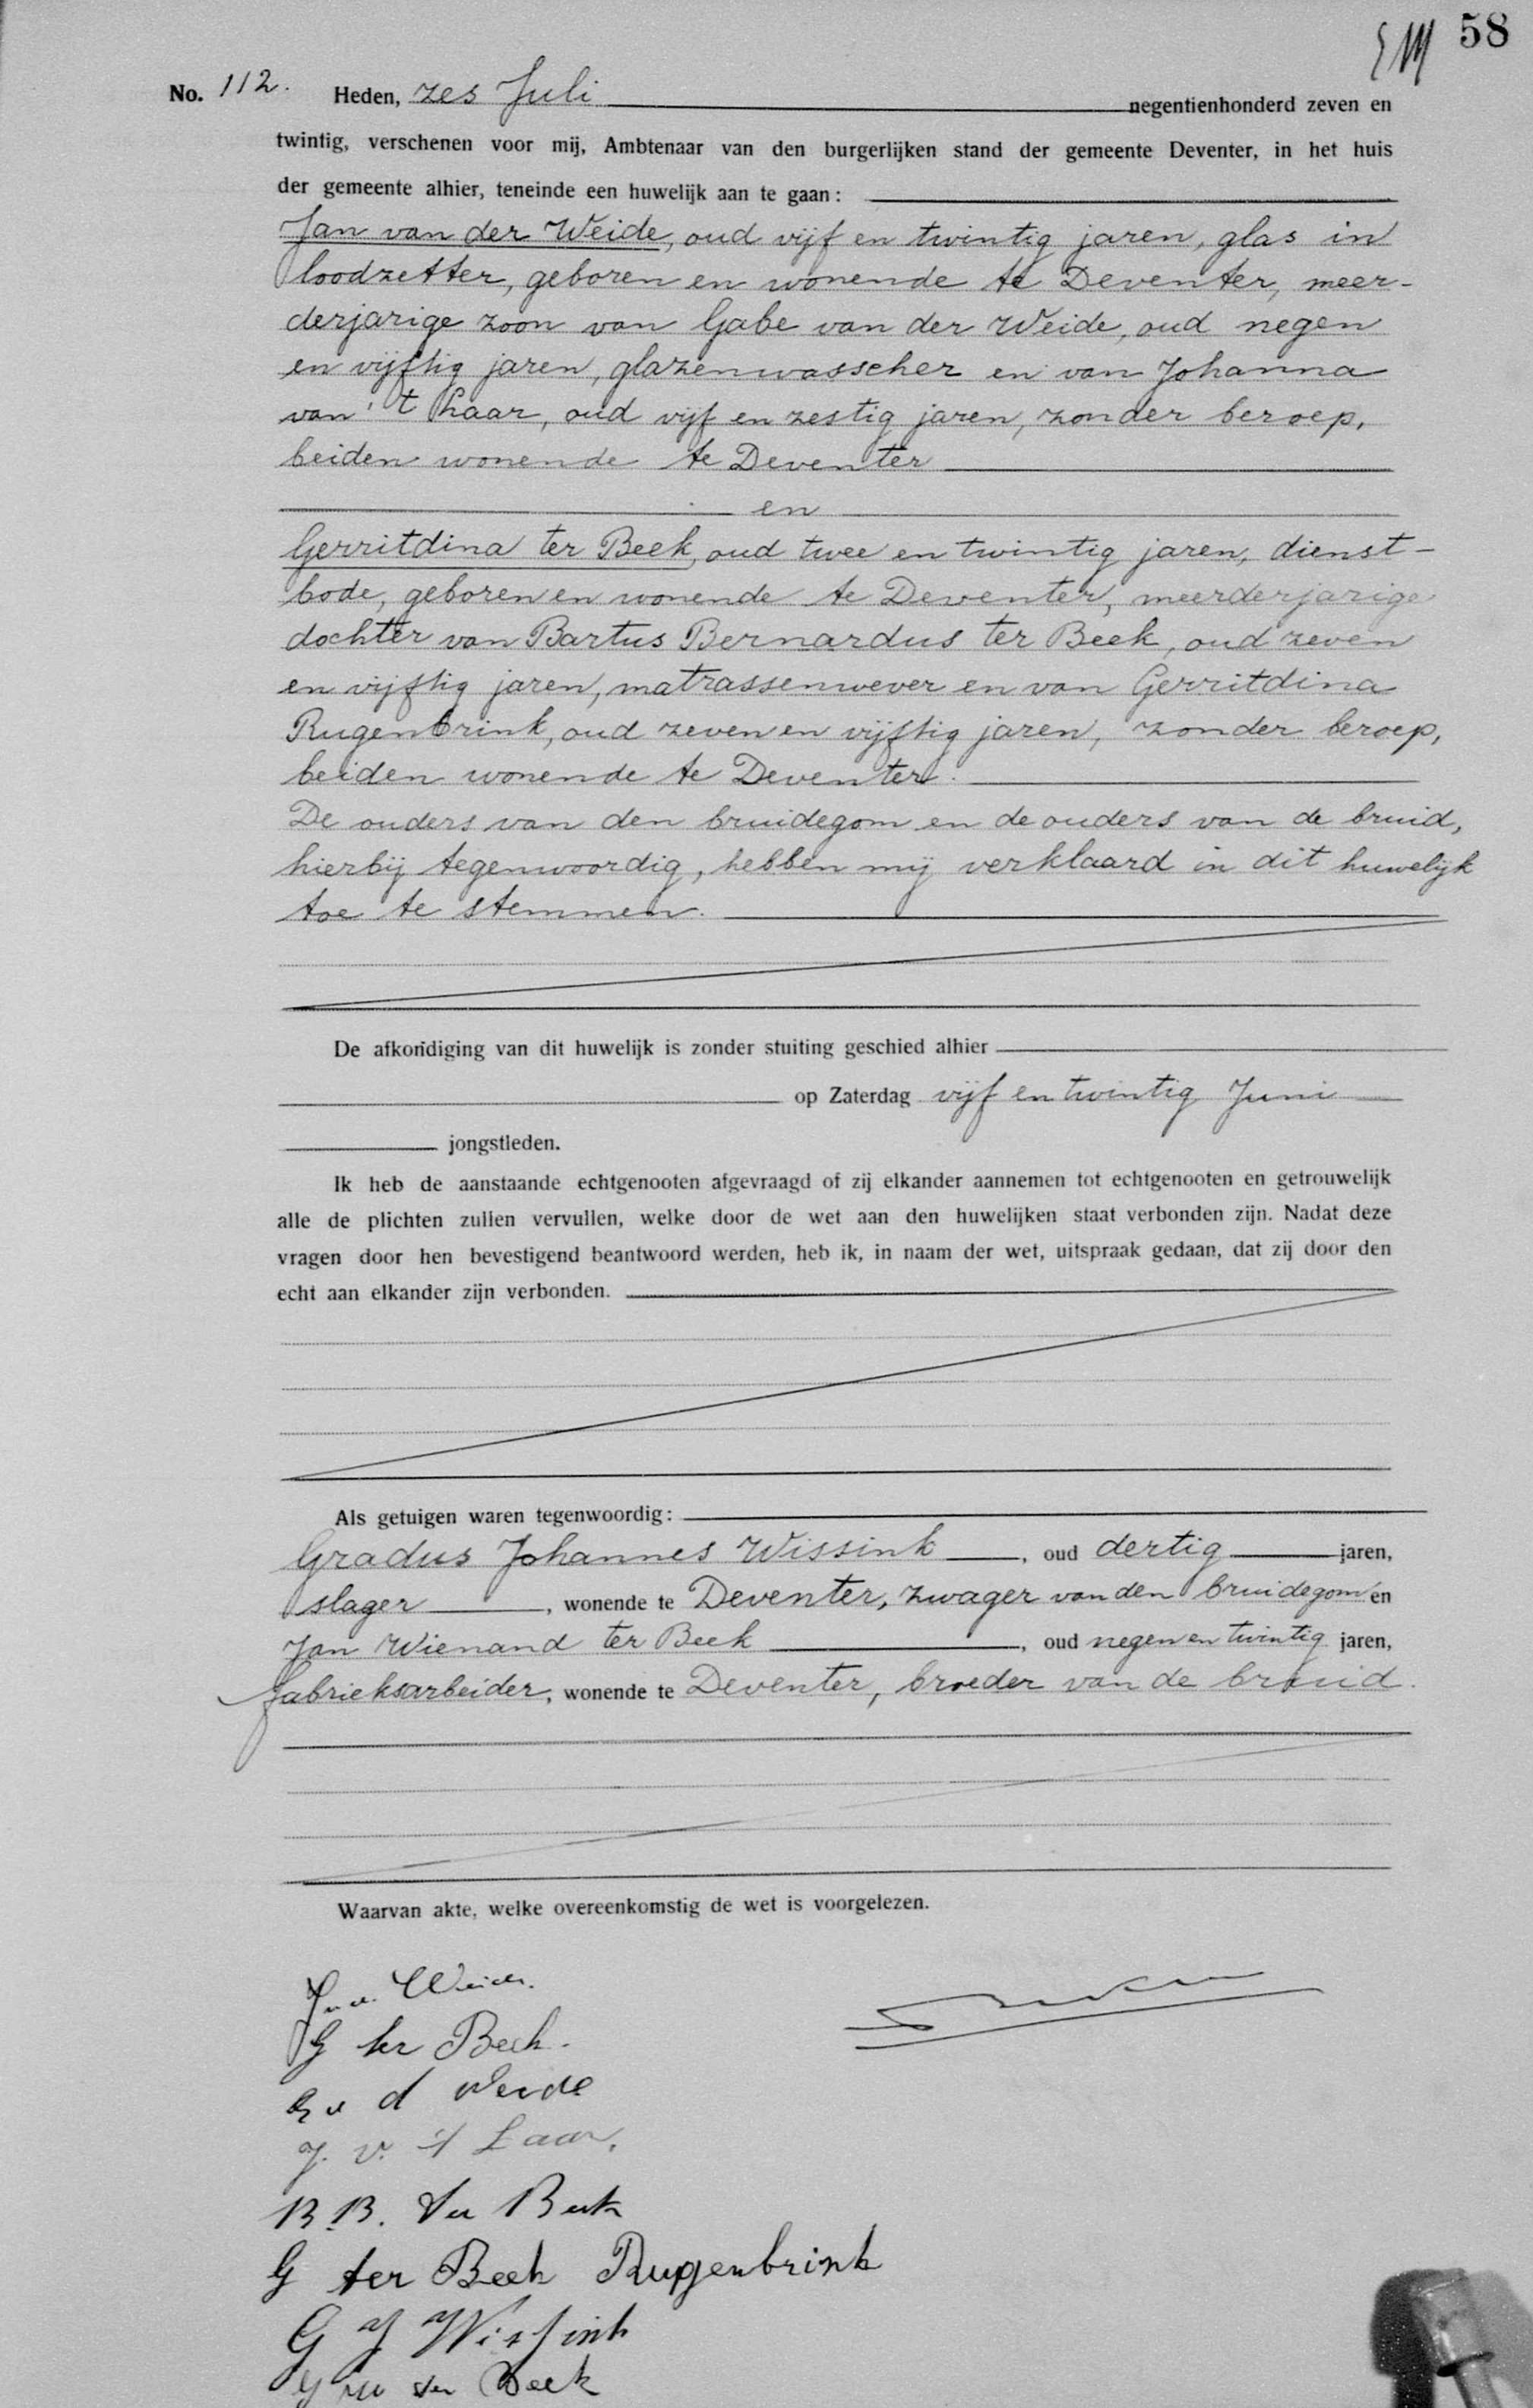 58
No. 112. Heden, zes Juli negentienhonderd zeven en
twintig, verschenen voor mij, Ambtenaar van den burgerlijken stand der gemeente Deventer, in het huis
der gemeente alhier, teneinde een huwelijk aan te gaan:
Jan van der Weide, oud vijf en twintig jaren, glas in
loodzetter, geboren en wonende te Deventer, meer-
derjarige zoon van Gabe van der Weide, oud negen
en vijftig jaren, glazenwasscher en van Johanna
van 't Laar, oud vijf en zestig jaren, zonder beroep,
beiden wonende te Deventer
en
Gerritdina ter Beek, oud twee en twintig jaren, dienst-
bode, geboren en wonende te Deventer, meerderjarige
dochter van Bartus Bernardus ter Beek, oud zeven
en vijftig jaren, matrassenwever en van Gerritdina
Rugenbrink, oud zeven en vijftig jaren, zonder beroep,
beiden wonende te Deventer.
De ouders van den bruidegom en de ouders van de bruid,
hierbij tegenwoordig, hebben mij verklaard in dit huwelijk
toe te stemmen.
De afkondiging van dit huwelijk is zonder stuiting geschied alhier
op Zaterdag vijf en twintig Juni
jongstleden.
Ik heb de aanstaande echtgenooten afgevraagd of zij elkander aannemen tot echtgenooten en getrouwelijk
alle de plichten zullen vervullen, welke door de wet aan den huwelijken staat verbonden zijn. Nadat deze
vragen door hen bevestigend beantwoord werden, heb ik, in naam der wet, uitspraak gedaan, dat zij door den
echt aan elkander zijn verbonden.
Als getuigen waren tegenwoordig:
Gradus Johannes Wissink, oud dertig jaren,
slager, wonende te Deventer, zwager van den bruidegom en
Jan Wienand ter Beek, oud negen en twintig jaren,
fabrieksarbeider, wonende te Deventer, broeder van de bruid.
Waarvan akte, welke overeenkomstig de wet is voorgelezen.
G ter Beek.
G v d Weide
J. v. 't Laar.
B.B. ter Beek
G ter Beek Rugenbrink
G J Wissink
J W ter Beek